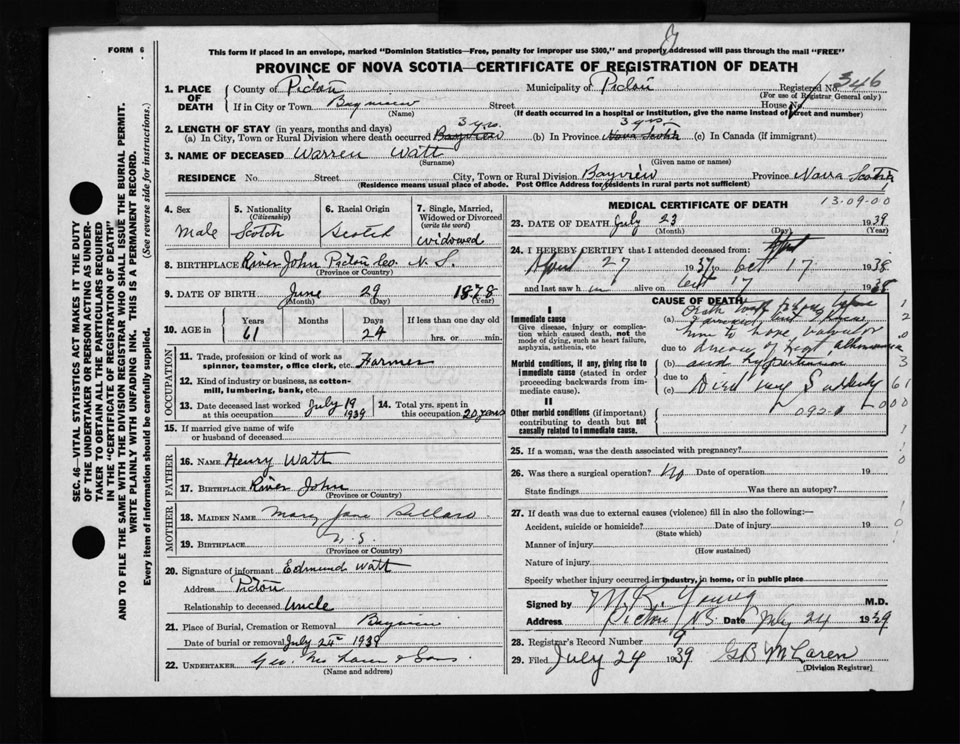 FORM 6
This form if placed in an envelope, marked "Dominion Statistics—Free, penalty for improper use $300," and properly addressed will pass through the mail "FREE"
PROVINCE OF NOVA SCOTIA—CERTIFICATE OF REGISTRATION OF DEATH
1. PLACE OF DEATH
County of Pictou Municipality of Pictou Registered No. 346
(For use of Registrar General only)
If in City or Town Bayview Street House No.
(Name) (If death occurred in a hospital or institution, give the name instead of street and number)
2. LENGTH OF STAY (in years, months and days)
3 yrs. 3 yrs.
(a) In City, Town or Rural Division where death occurred Bayview (b) In Province Nova Scotia (c) In Canada (if immigrant)
3. NAME OF DECEASED Warren Watt
(Surname) (Given name or names)
RESIDENCE No. Street City, Town or Rural Division Bayview Province Nova Scotia
(Residence means usual place of abode. Post Office Address for residents in rural parts not sufficient)
4. Sex
Male
5. Nationality
(Citizenship)
Scotch
6. Racial Origin
Scotch
7. Single, Married, Widowed or Divorced
(write the word)
widowed
8. BIRTHPLACE River John Pictou Co. N. S.
(Province or Country)
9. DATE OF BIRTH June 29 1878
(Month) (Day) (Year)
10. AGE in
Years Months Days If less than one day old
61 24 hrs. or min.
OCCUPATION
11. Trade, profession or kind of work as spinner, teamster, office clerk, etc. Farmer
12. Kind of industry or business, as cotton-mill, lumbering, bank, etc.
13. Date deceased last worked at this occupation July 19 1939
14. Total yrs. spent in this occupation 20 years
15. If married give name of wife or husband of deceased
FATHER
16. NAME Henry Watt
17. BIRTHPLACE River John
(Province or Country)
MOTHER
18. MAIDEN NAME Mary Jane
19. BIRTHPLACE N. S.
(Province or Country)
20. Signature of informant Edmund Watt
Address Pictou
Relationship to deceased Uncle
21. Place of Burial, Cremation or Removal Bayview
Date of burial or removal July 25th 1939
22. UNDERTAKER Geo. McLaren & Sons
(Name and address)
MEDICAL CERTIFICATE OF DEATH
13-09-00
23. DATE OF DEATH July 23 1939
(Month) (Day) (Year)
24. I HEREBY CERTIFY that I attended deceased from:
April 27 1937 to Oct 17 1938
and last saw him alive on Oct 17 1938
CAUSE OF DEATH
I
Immediate cause
Give disease, injury or complication which caused death, not the mode of dying, such as heart failure, asphyxia, asthenia, etc
(a)
due to
Morbid conditions, if any, giving rise to immediate cause (stated in order proceeding backwards from immediate cause).
(b) and hypertension
due to
(c) Died very Suddenly
II
Other morbid conditions (if important) contributing to death but not causally related to immediate cause.
092.1
25. If a woman, was the death associated with pregnancy?
26. Was there a surgical operation? No Date of operation 19
State findings Was there an autopsy?
27. If death was due to external causes (violence) fill in also the following:—
Accident, suicide or homicide? Date of injury 19
(State which)
Manner of injury
(How sustained)
Nature of injury
Specify whether injury occurred in industry, in home, or in public place
Signed by M. R. Young M.D.
Address Pictou N.S. Date July 24 1939
28. Registrar's Record Number 9
29. Filed July 24 1939 G B McLaren
(Division Registrar)
SEC. 46—VITAL STATISTICS ACT MAKES IT THE DUTY
OF THE UNDERTAKER OR PERSON ACTING AS UNDER-
TAKER TO OBTAIN ALL THE PARTICULARS REQUIRED
IN THE "CERTIFICATE OF REGISTRATION OF DEATH"
AND TO FILE THE SAME WITH THE DIVISION REGISTRAR WHO SHALL ISSUE THE BURIAL PERMIT.
WRITE PLAINLY WITH UNFADING INK. THIS IS A PERMANENT RECORD.
Every item of information should be carefully supplied. (See reverse side for instructions.)